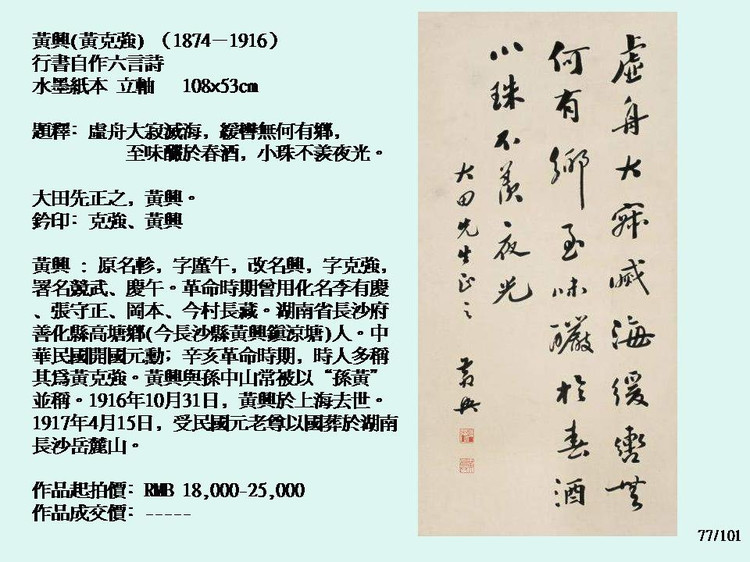 黃興(黃克強) （1874－1916）
行書自作六言詩
水墨紙本 立軸 108x53cm
題釋：虛舟大寂滅海，緩轡無何有鄉，
至味釅於春酒，小珠不羨夜光。
大田先正之，黃興。
鈐印：克強、黃興
黃興 : 原名軫，字廑午，改名興，字克強，
署名競武、慶午。革命時期曾用化名李有慶
、張守正、岡本、今村長藏。湖南省長沙府
善化縣高塘鄉(今長沙縣黃興鎮涼塘)人。中
華民國開國元勳；辛亥革命時期，時人多稱
其爲黃克強。黃興與孫中山常被以“孫黃”
並稱。1916年10月31日，黃興於上海去世。
1917年4月15日，受民國元老尊以國葬於湖南
長沙岳麓山。
作品起拍價：RMB 18,000-25,000
作品成交價：-----
虛舟大寂滅海緩轡無
何有鄉至味釅於春酒
小珠不羨夜光
大田先生正之
黃興
77/101